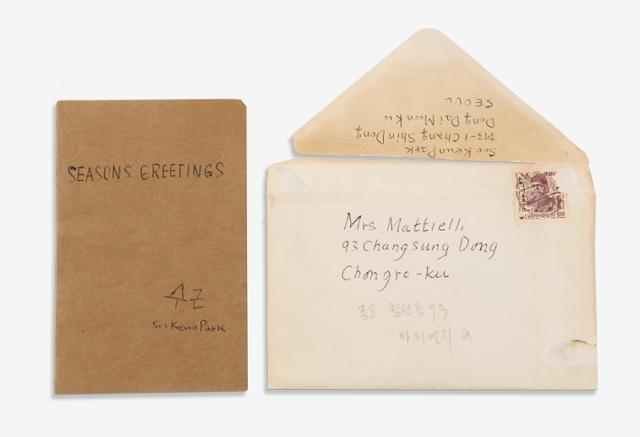 SEASONS GREETINGS
수근
Soo Keun Park
Soo Keun Park
393-1 Chang Shin Dong
Dong Dai Moon Ku
SEOUL
Mrs Mattielli
93 Changsung Dong
Chongro-ku
종로 창성동 93
마티엘리